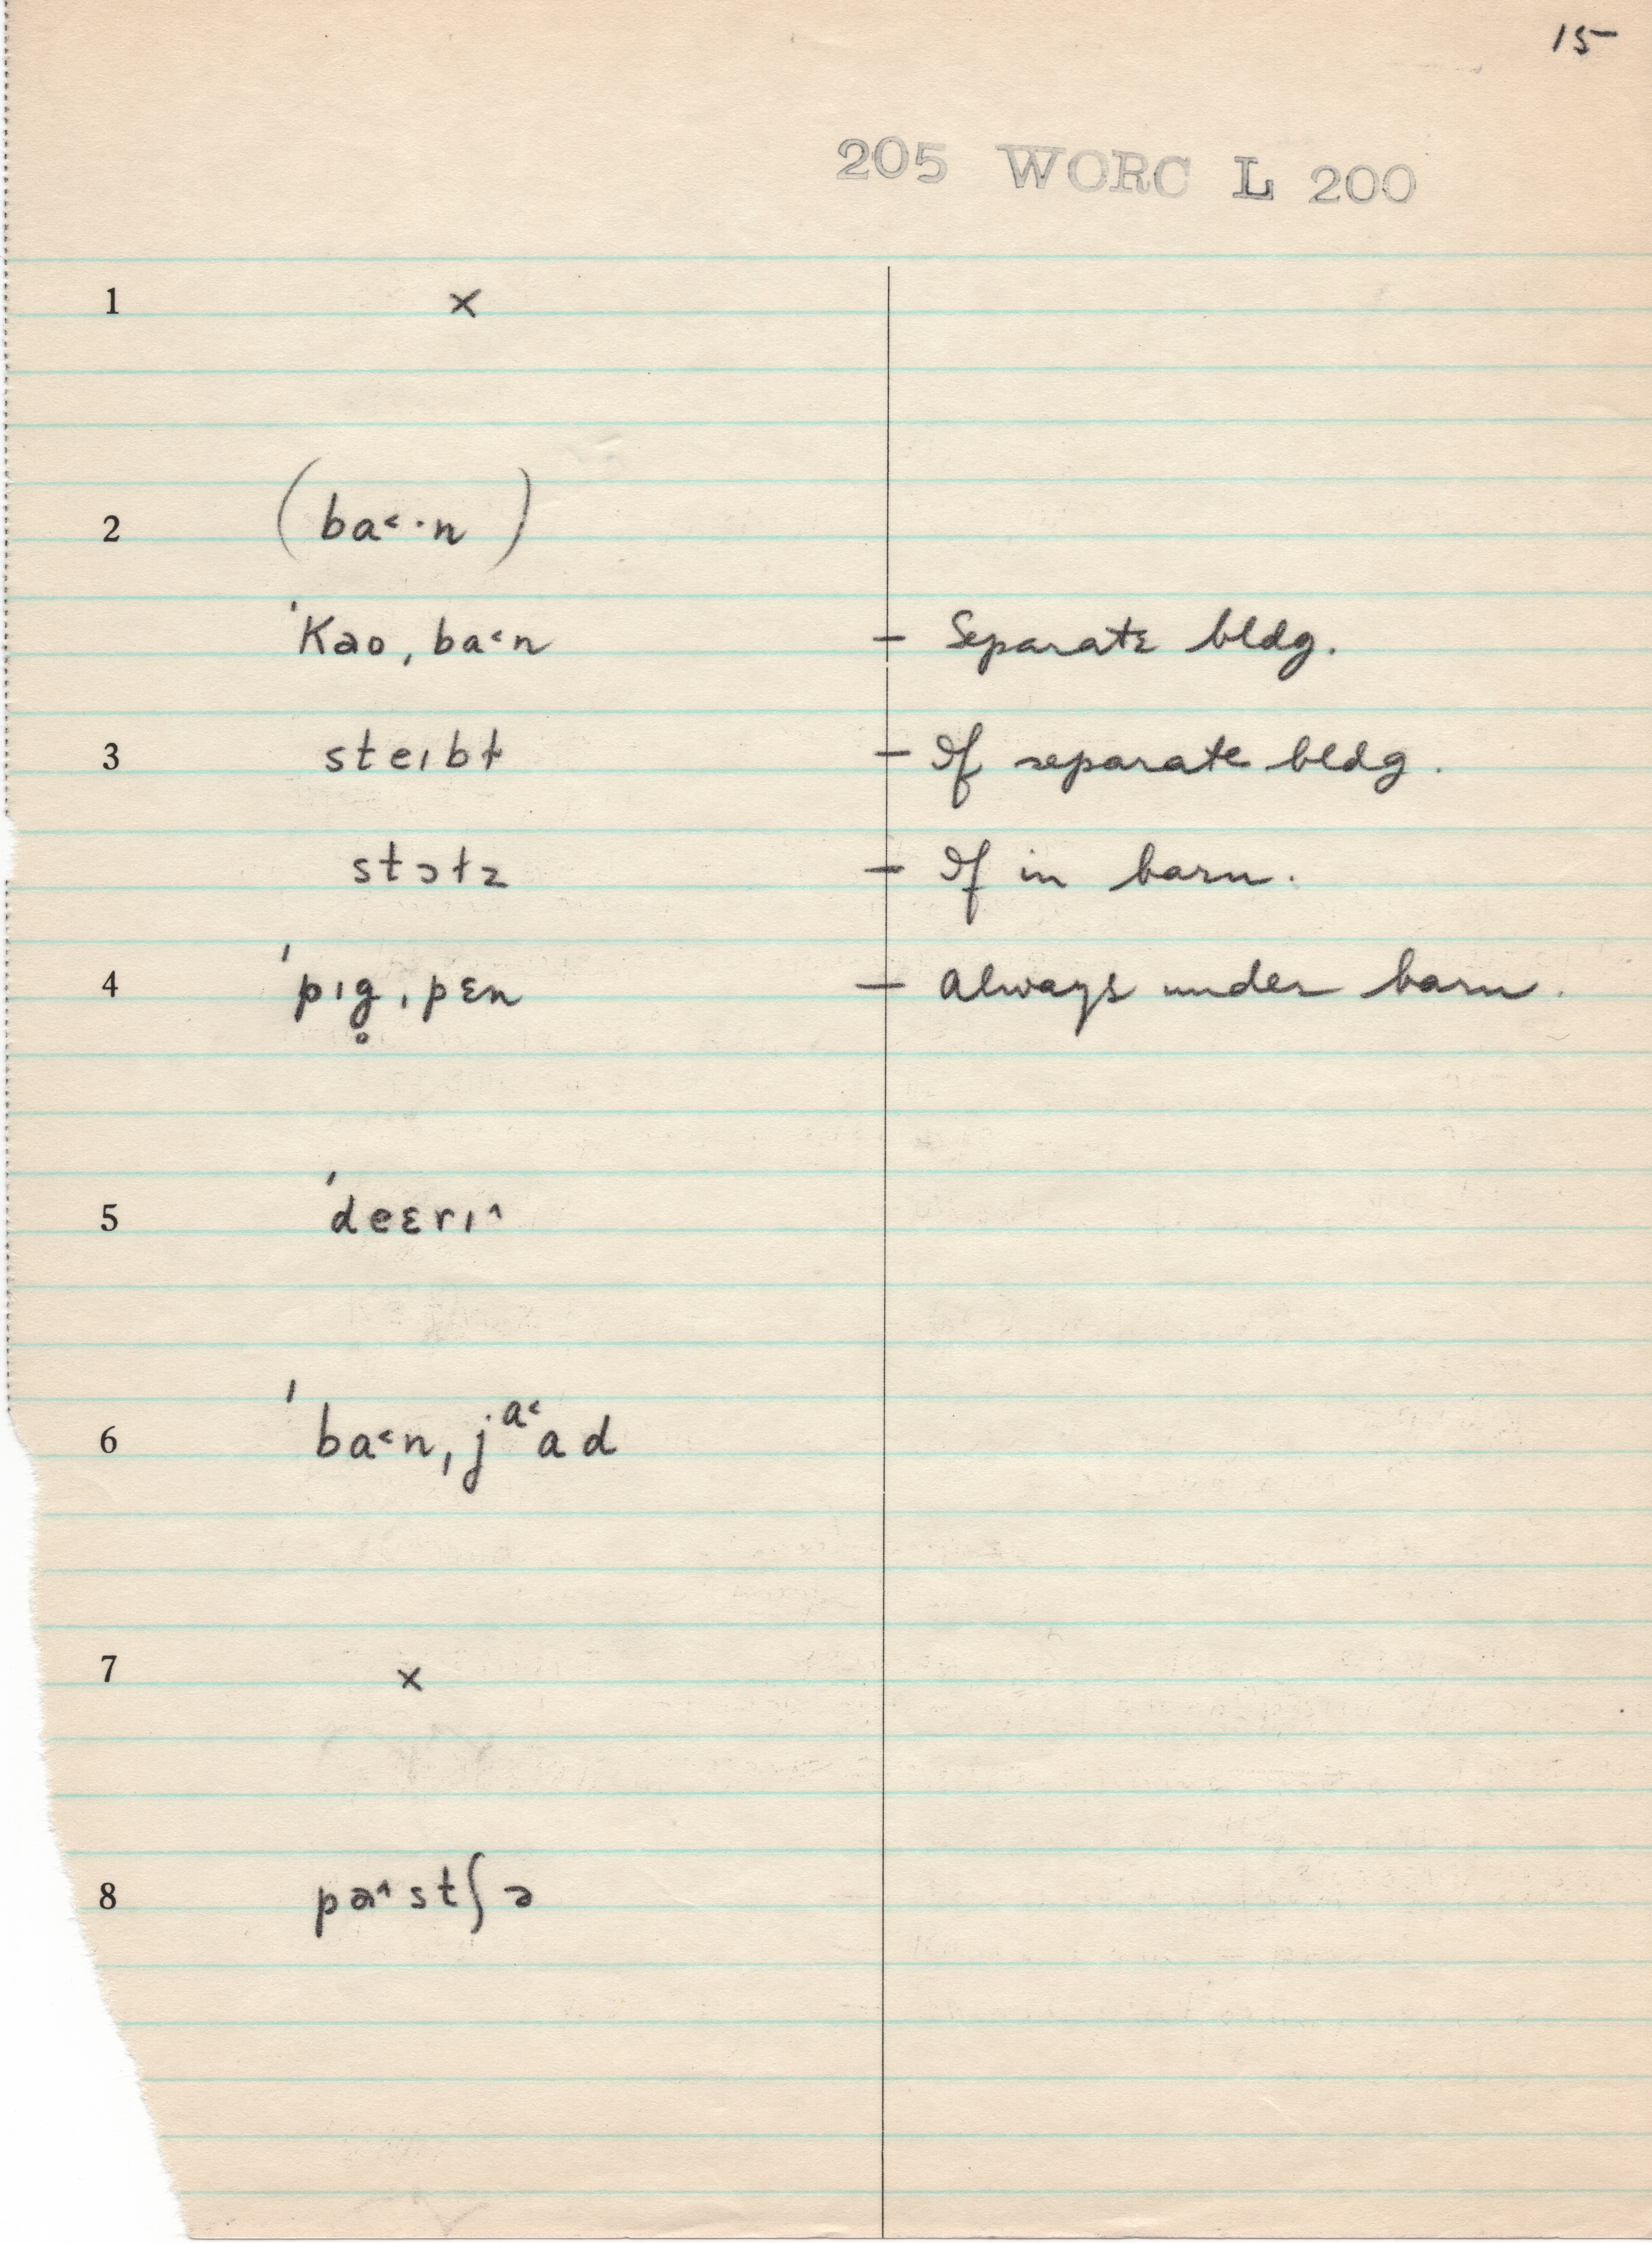 15
205 WORC L 200
1 ×
2 (ba˂·n)
ˈkəoˌba˂n – Separate bldg.
3 steɪbɫ – If separate bldg.
stɔɫz – If in barn.
4 ˈpɪg̥ˌpɛn – Always under barn.
5 ˈdeɛrɪ˄
6 ˈba˂nˌjᵃ˂ad
7 ×
8 pa˄stʃə